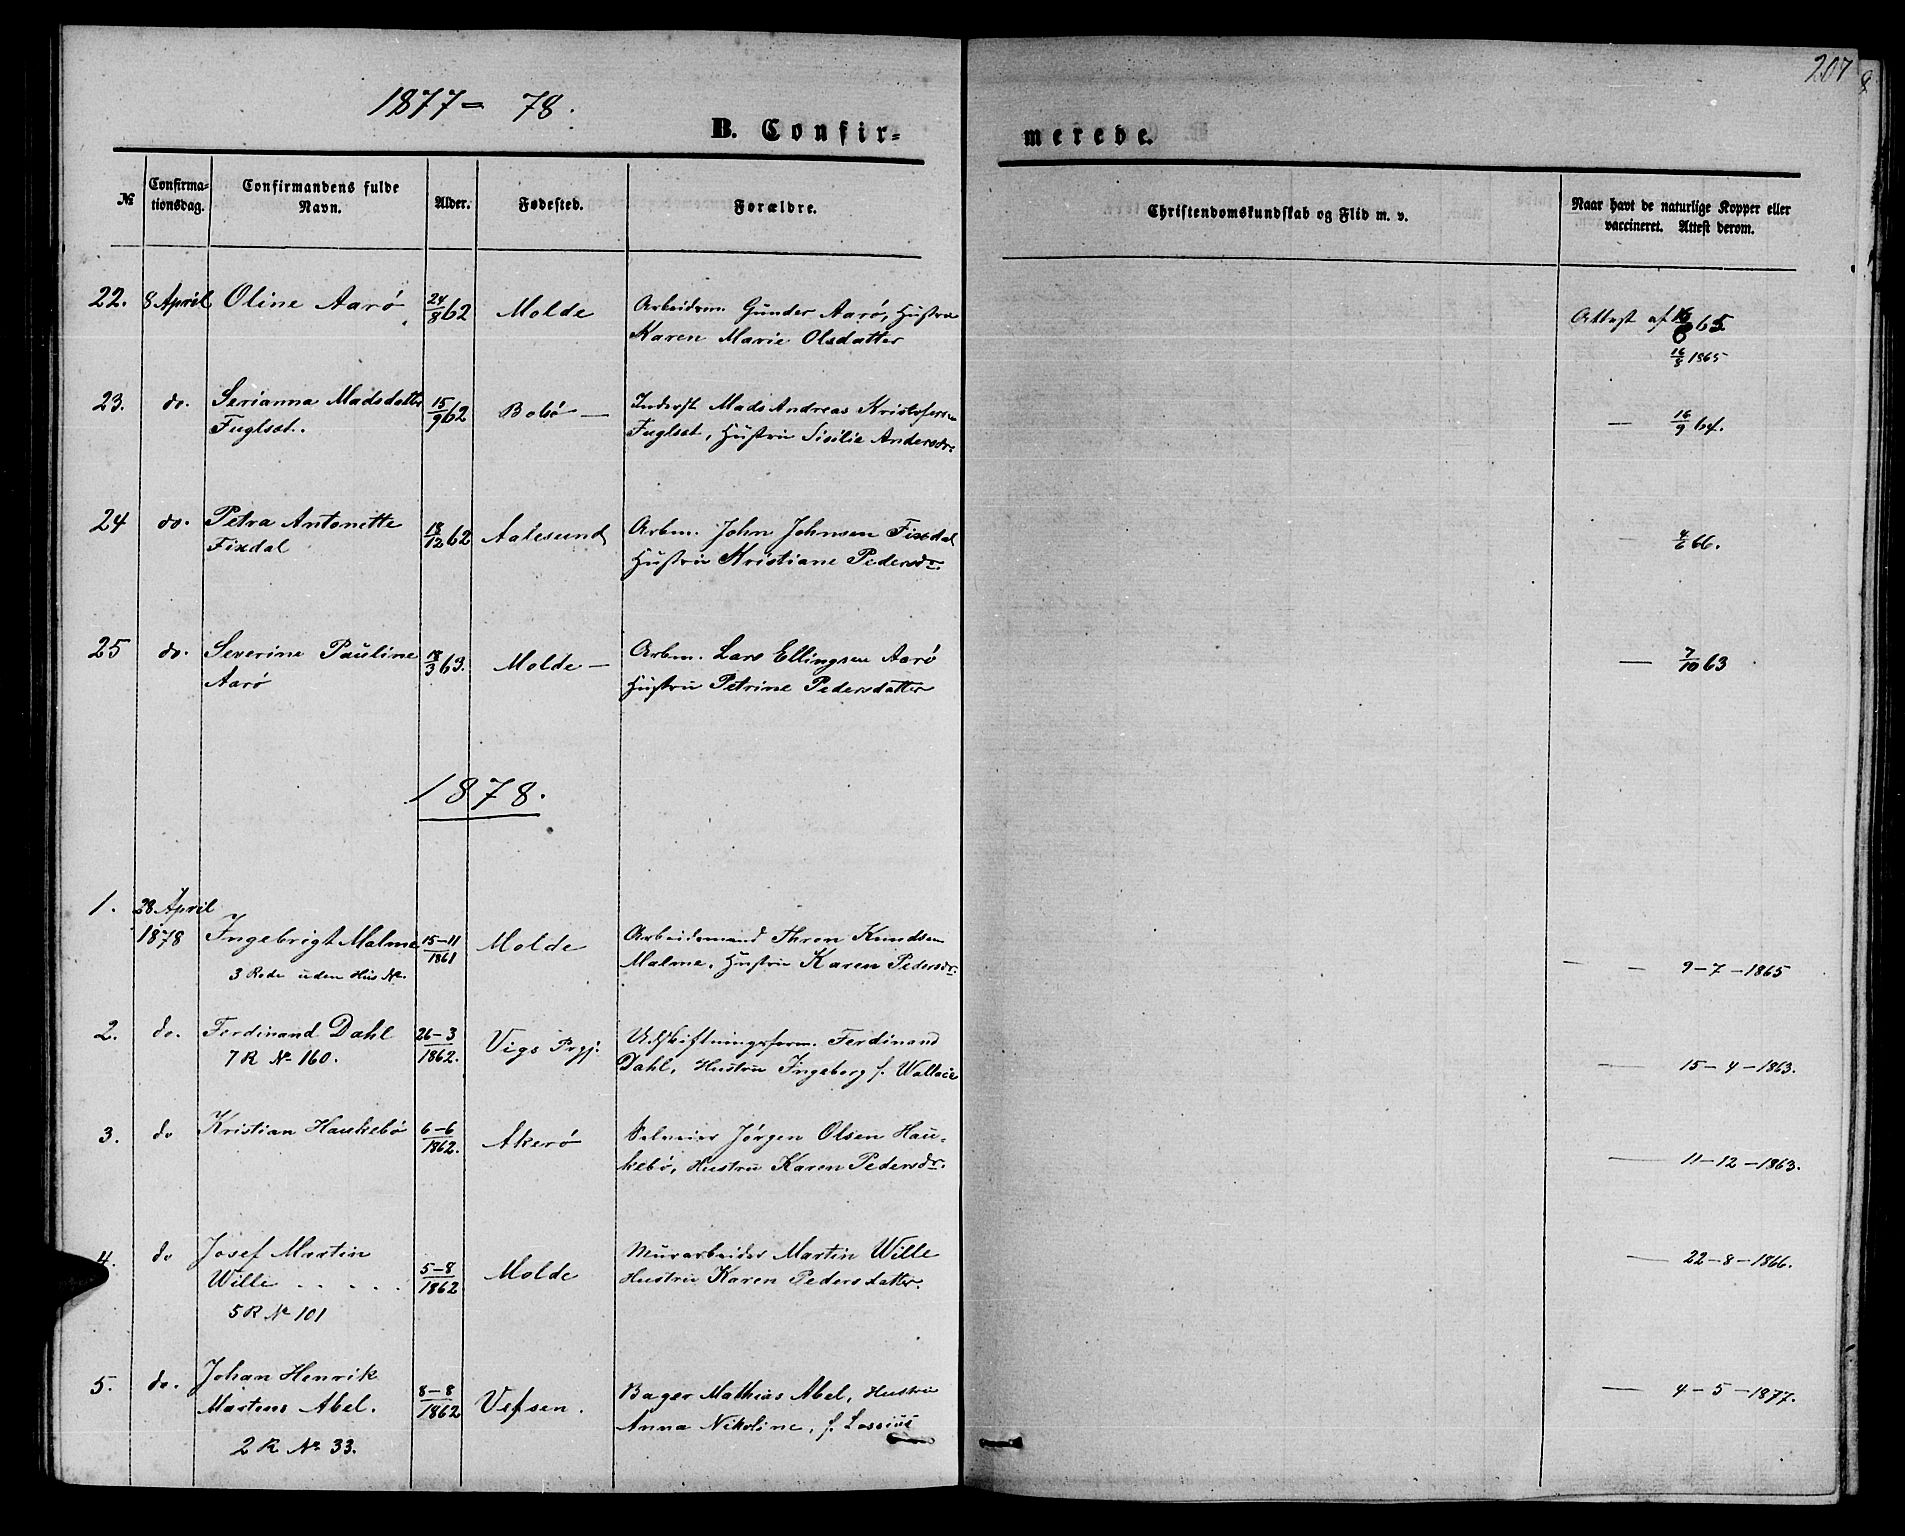 1877 = 78.
207
8
B. Confir=
merede.
№
Confirma-
tionsdag.
Confirmandens fulde
Navn.
Alder.
Fødested.
Forældre.
Christendomskundskab og Flid m. v.
Naar havt de naturlige Kopper eller
vaccineret. Attest derom.
22. 8 April Oline Aarö 24/8 62 Molde Arbeidsm. Gunder Aarö, Hustru
Karen Marie Olsdatter
Attest af 16/8 65
16/8 1865
23. do. Serianna Madsdatter 15/9 62 Bolsö — Inderst Mads Andreas Kristofersen
Fuglset. Fuglset, Hustru Sisilie Andersdr.
— 16/9 64.
24 do. Petra Antonette 18/12 62 Aalesund Arbm. John Johnsen Fixdal
Fixdal Hustru Kristiane Pedersdr.
— 4/6 66.
25 do. Severine Pauline 18/3 63. Molde — Arbm. Lars Ellingsen Aarö
Aarö Hustru Petrine Pedersdatter
— 7/10 63
1878.
1. 28 April
1878 Ingebrigt Malme 15-11/1861 Molde Arbeidsmand Thron Knudsen
3 Rode uden Hus No. Malme, Hustru Karen Pedersdr.
— — 9-7-1865
2. do. Ferdinand Dahl 26-3/1862. Vigs Prgj. Udskiftningsform. Ferdinand
7 R No 160. Dahl, Hustru Ingeborg f. Wallace
— 15-4-1863.
3. do Kristian Haukebö 6-6/1862. Akerö Selveier Jörgen Olsen Hau-
kebö, Hustru Karen Pedersdr.
— 11-12-1863.
4. do Josef Martin Murarbeider Martin Wille
Wille . . . . 5-8/1862 Molde Hustru Karen Pedersdatter.
5 R No 101
— 22-8-1866.
5. do. Johan Henrik
Martens Abel. 8-8/1862 Vefsen. Bager Mathias Abel, Hustru
2 R No 33. Anna Nikoline, f. Lossius
— 4-5-1877.